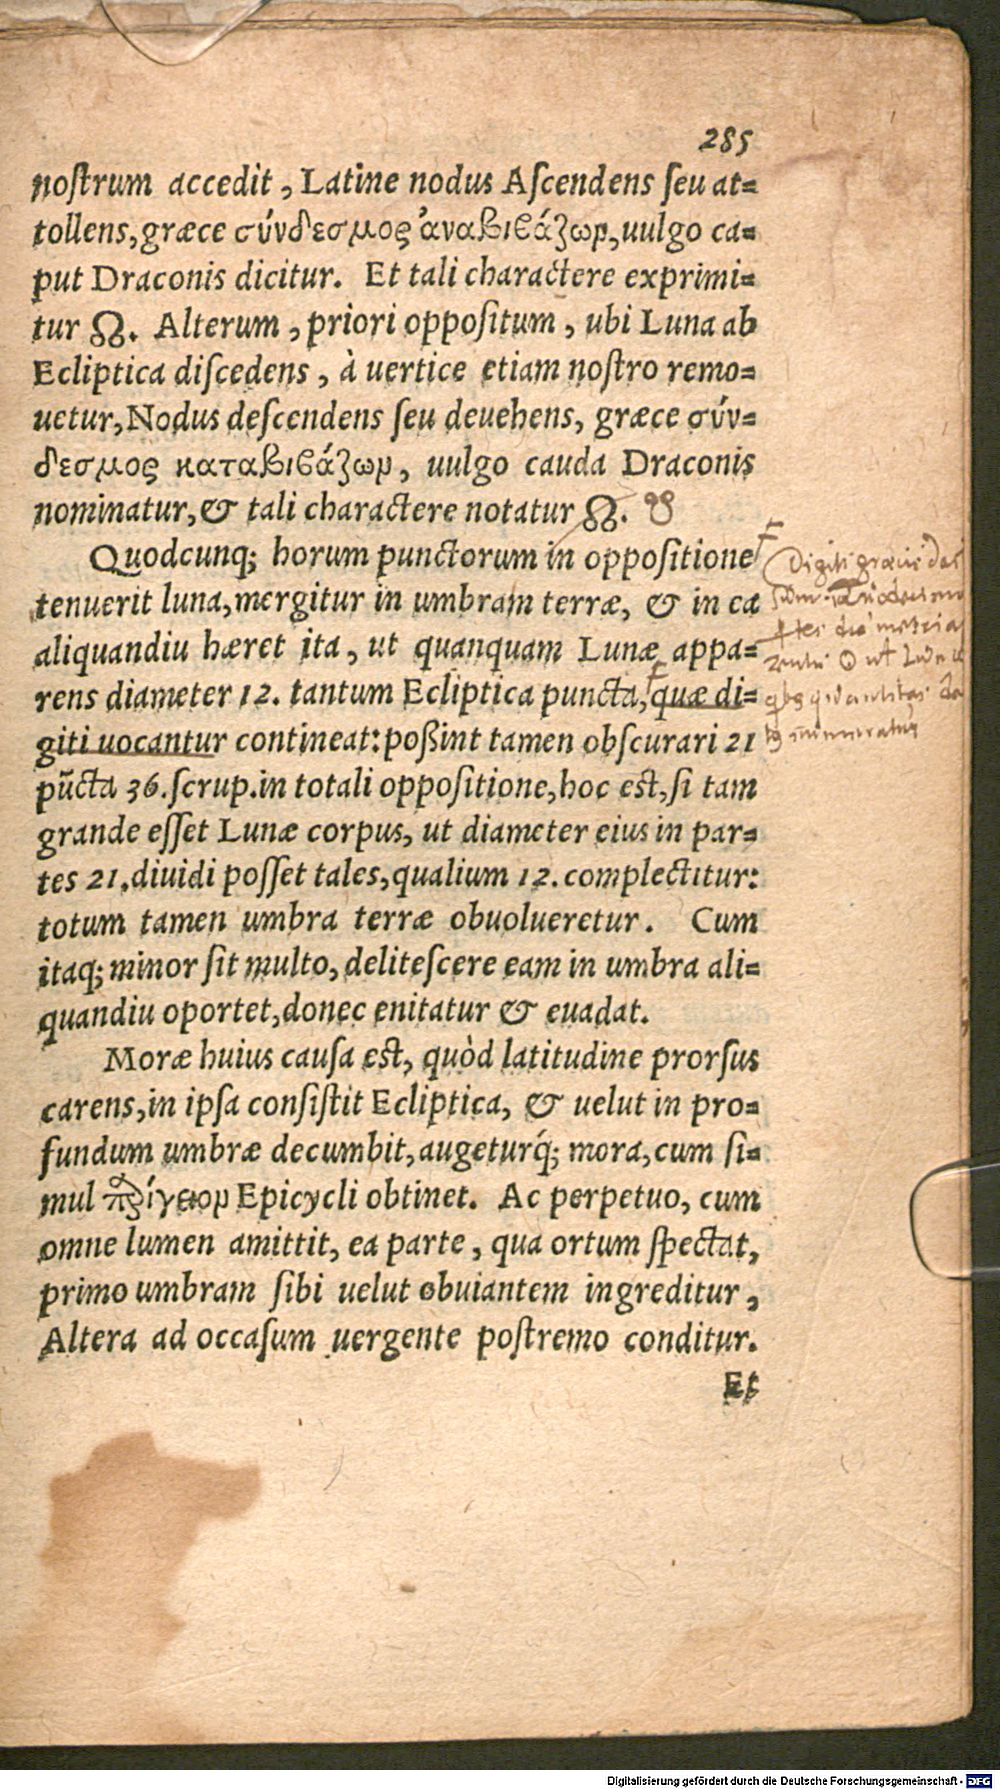 285
noſtrum accedit, Latine nodus Aſcendens ſeu at=
tollens, græce σύνδεσμος ἀναβιβάζων, uulgo ca=
put Draconis dicitur. Et tali charactere exprimi=
tur ☊. Alterum, priori oppoſitum, ubi Luna ab
Ecliptica diſcedens, à uertice etiam noſtro remo=
uetur, Nodus deſcendens ſeu deuehens, græce σύν=
δεσμος καταβιβάζων, uulgo cauda Draconis
nominatur, & tali charactere notatur ☊. ☋
Quodcunq; horum punctorum in oppoſitione
tenuerit luna, mergitur in umbram terræ, & in ea
aliquandiu hæret ita, ut quanquam Lunæ appa=
rens diameter 12. tantum Ecliptica puncta, quæ di=
giti uocantur contineat: poßint tamen obſcurari 21
pũcta 36. ſcrup. in totali oppoſitione, hoc eſt, ſi tam
grande eſſet Lunæ corpus, ut diameter eius in par=
tes 21. diuidi poſſet tales, qualium 12. complectitur:
totum tamen umbra terræ obuolueretur. Cum
itaq; minor ſit multo, deliteſcere eam in umbra ali=
quandiu oportet, donec enitatur & euadat.
Moræ huius cauſa eſt, quòd latitudine prorſus
carens, in ipſa conſiſtit Ecliptica, & uelut in pro=
fundum umbræ decumbit, augeturq́; mora, cum ſi=
mul περίγειον Epicycli obtinet. Ac perpetuo, cum
omne lumen amittit, ea parte, qua ortum ſpectat,
primo umbram ſibi uelut obuiantem ingreditur,
Altera ad occaſum uergente poſtremo conditur.
Et
Digiti
Digitalisierung gefördert durch die Deutsche Forschungsgemeinschaft - DFG